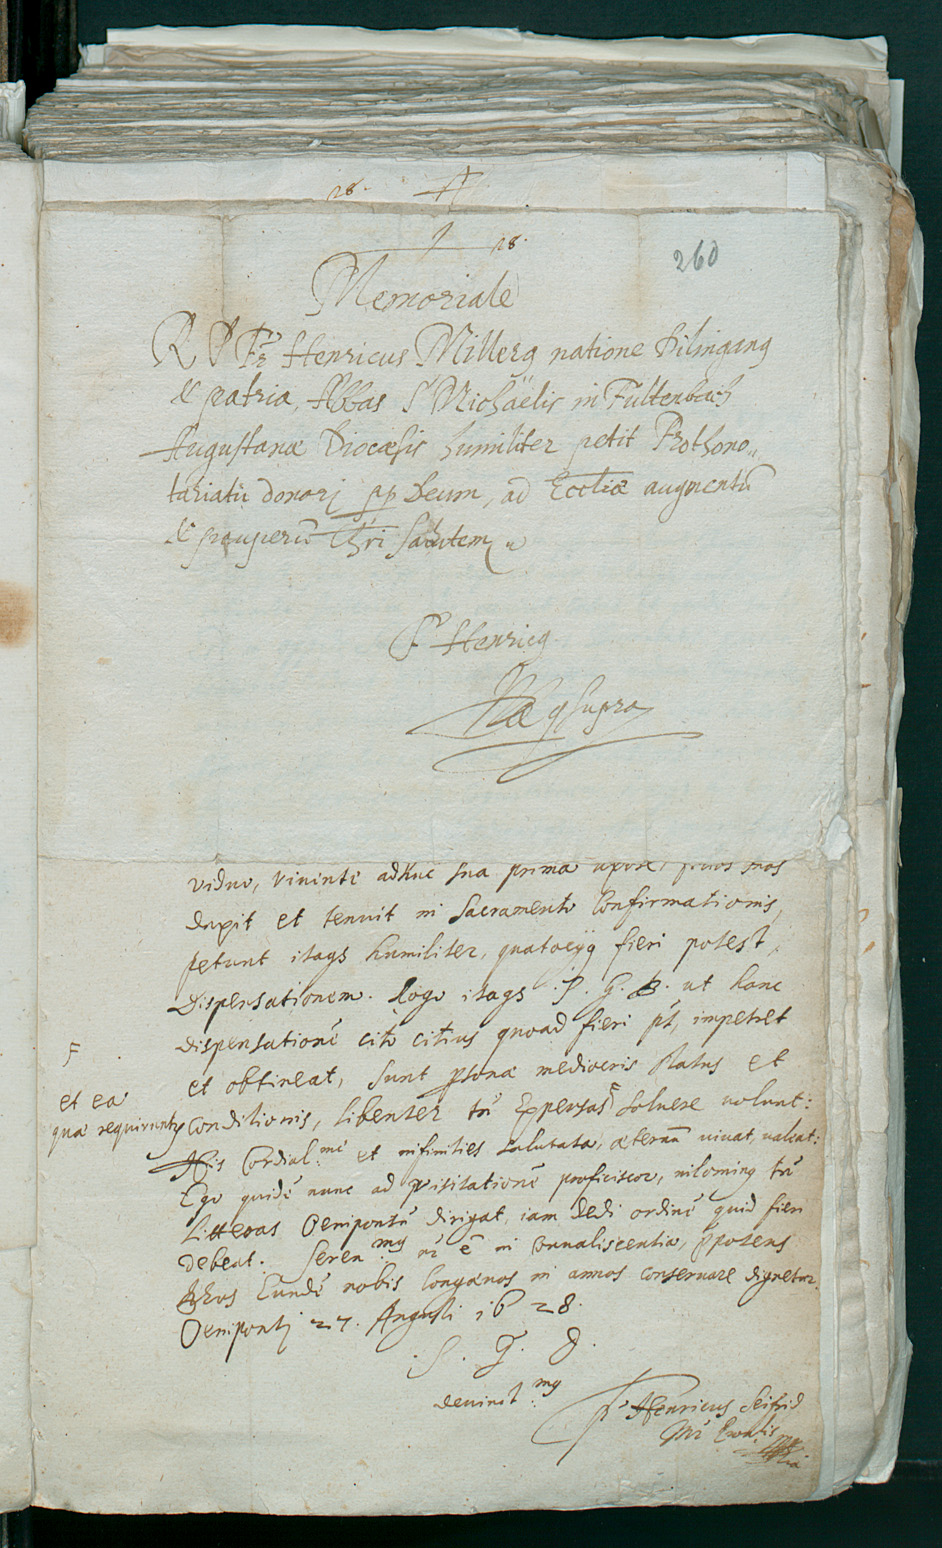 28.
28.
260
Memoriale
R P Fr Henricus Millerg natione Dilingang
& patria, Abbas S Michaëlis in Fultenbach
Augustanæ Diocæsis humiliter petit Prothono„
tariatū donarj pp Deum, ad Eccliæ augmentū
& pauperū Chri Salutem
F Henricg
qs supra
viduo, vivente adhuc sua prima uxore,
duxit et tenuit in Sacramento Confirmationis,
petunt itaqs humiliter, fieri potest,
Dispensationem. Rogo itaqs P. G. ut hanc
dispensationē citò citius quoad fieri pt, impetret
et obtineat, sunt psonæ mediocris status et
F
et ea
quæ requiruntur
Conditionis, libenter tn Expensas F solvere uolunt:
His Cordial.me et infinities salutata, æternū uiuat, ualeat:
Ego quidē nunc ad visitationē proficiscor, nilominq tn
Litteras Oenipontū dirigat, iam dedi ordinē quid fieri
debeat. Seren.mg nr ē in Conualiscentia, ppotens
Deus Eundē nobis longænos in annos conseruare dignetur.
Oenipontj 27. Augusti 1628.
S. G. D.
deuinct.mg
F Henricus Seifrid